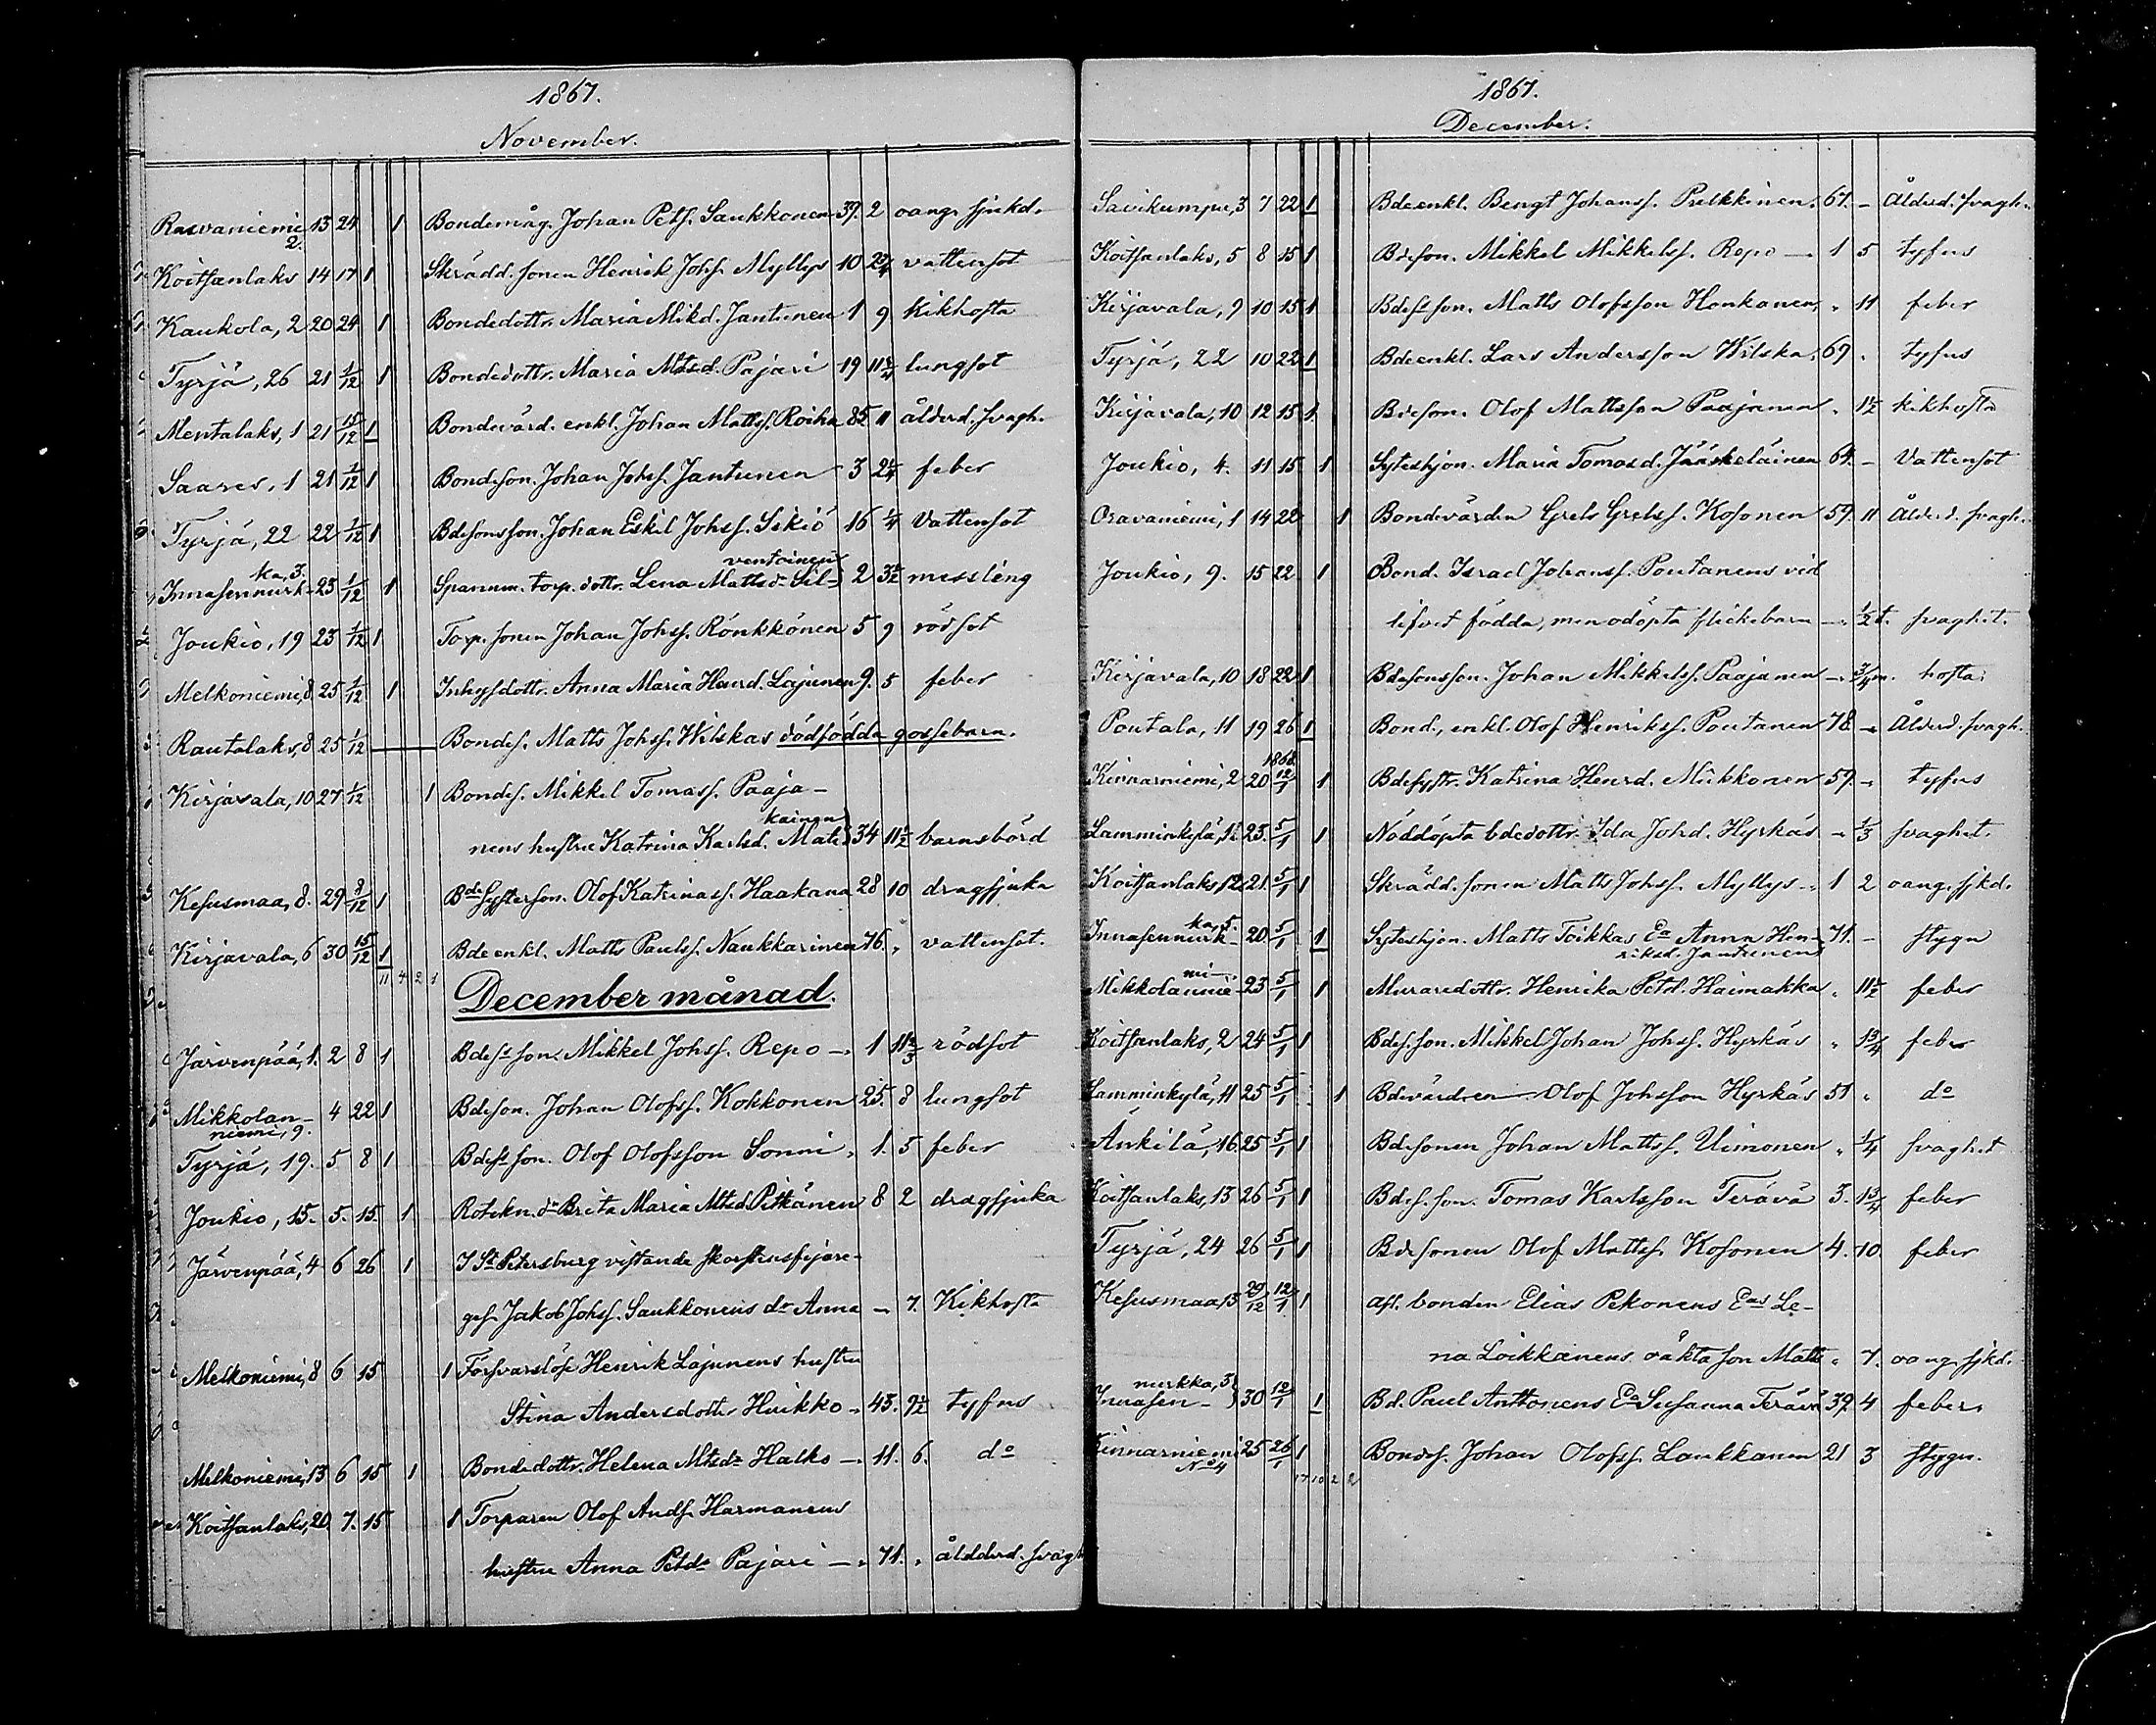 1867.
November.
Rasvaniemi 2. 13 24 1 Bondemåg. Johan Petss. Saukkonen 39. 2 oang. sjukd.
Koitsanlaks 14 17 1 Skrädd. sonen Henrik Johss. Myllys 10 2¼ vattensot
Kaukola, 2 20 24 1 Bondedottr. Maria Mikd. Jantunen 1 9 Kikhosta
Tyrjä, 26 21 1/12 1 Bondedottr. Maria Mtsd. Pajari 19 11¾ lungsot
Mentalaks, 1 21 15/12 1 Bondevärd. enkl. Johan Mattss. Roiha 85 11 ålderd. svagh.
Saares, 1 21 1/12 1 Bondeson. Johan Johss. Jantunen 3 2¼ feber
Tyrjä, 22 22 1/12 1 Bdesonsson. Johan Eskil Johss. Iskiö 16 ¼ Vattensot
Innasennurkka, 3. 23 1/12 1 Spannm. torp. dottr. Lena Mattsd. Silventoinen 2 3½ messling
Joukio, 19 23 1/12 1 Torp. sonen Johan Johss. Rönkkönen 5 9 rödsot
Melkoniemi, 8 25 1/12 1 Inhysdottr. Anna Maria Henrd. Lajunen 9. 5 feber
Rautalaks, 8 25 1/12 Bondes. Matts Johss. Wilskas dödfödda gossebarn.
Kirjavala, 10 27 1/12 1 Bondes. Mikkel Tomass. Paaja-
nens hustru Katrina Karlsd. Matikainen 34 11½ barnsbörd
Kesusmaa, 8. 29 8/12 1 Bde systerson. Olof Katrinass. Haakana 28 10 dragsjuka
Kirjavala, 6 30 15/12 1 Bdeenkl. Matts Paulss. Naukkarinen 76. „ vattensot.
11 4 2 1
December månad.
Järvenpää, 1. 2 8 1 Bdess son. Mikkel Johss. Repo — 1 11⅔ rödsot
Mikkolanniemi, 9. 4 22 1 Bdeson. Johan Olofss. Kokkonen 25. 8 lungsot
Tyrjä, 19. 5. 8 1 Bdess son. Olof Olofsson Sonni „ 1. 5 feber
Joukio, 15. 5. 15. 1 Rotekn. dr Brita Maria Mtsd. Pitkänen 8 2 dragsjuka
Järvenpää, 4 6 26 1 I St Petersburg vistande skorstensfejare-
ges. Jakob Johss. Saukkonens dr Anna — 7. Kikhosta
Melkoniemi, 8 6 15 1 Försvarslöse Henrik Lajunens hustru
Stina Andersdotter Huikko — 43. 9½ tyfus
Melkoniemi, 13 6 15 1 Bondedottr. Helena Mtsdr Halko — 11. 6. do
Koitsanlaks, 20 7. 15 1 Torparen Olof Ands. Harmanens
hustru Anna Petdr Pajari — 71. „ ålderd. svagh
1867.
December.
Savikumpu, 3 7 22 1 Bdeenkl. Bengt Johanss. Pulkkinen. 67. — Ålderd. svagh.
Koitsanlaks, 5 8 15 1 Bdeson. Mikkel Mikkelss. Repo — 1 5 tyfus
Kirjavala, 9 10 15 1 Bdess son. Matts Olofsson Honkanen, „ 11 feber
Tyrjä, 22 10 22 1 Bdeenkl. Lars Andersson Wilska. 69. „ tyfus
Kirjavala, 10 12 15 1. Bdeson. Olof Mattsson Paajanen „ 1½ kikhosta
Joukio, 4. 11 15 1 Syteshjon. Maria Tomasd. Jääskeläinen 64. — Vattensot
Oravaniemi, 1 14 22 1 Bondevärden Grels Grelss. Kosonen 59. 11 Ålderd. svagh.
Joukio, 9. 15 22 1 Bond. Israel Johanss. Poutanens vid
lifvet födda, men odöpta flickebarn — ½ t. svaghet.
Kirjavala, 10 18 22 1 Bdesonsson. Johan Mikkelss. Paajanen — ¾ m. hosta.
Poutala, 11 19 26 1 Bond., enkl. Olof Henrikss. Poutanen 78. — Ålderd. svagh.
Kinnarniemi, 2 20 1868 12/1 1 Bdesystr. Katrina Henrd. Mikkonen 59. — tyfus
Lamminkylä, 23. 5/1 1 Nöddöpta bdedottr. Ida Johd. Hyrkäs — ⅓ svaghet.
Koitsanlaks, 12 21. 5/1 1 Skrädd. sonen Matts Johss. Myllys „ 1 2 oang. sjkd.
Innasennurkka, 5. 20 5/1 1 Syteshjon. Matts Toikkas Ea Anna Hen-
riksd. Jantunen 71. — stygn
Mikkolanniemi 23 5/1 1 Muraredottr. Henrika Petd. Haimakka „ 11½ feber
Koitsanlaks, 2 24 5/1 1 Bdes. son. Mikkel Johan Johss. Hyrkäs „ 1¾ feber
Lamminkylä, 11 25 5/1 1 Bdevärden Olof Johsson Hyrkäs 51 „ do
Änkilä, 16. 25 5/1 1 Bdesonen Johan Mattss. Uimonen „ ¼ svaghet
Koitsanlaks, 13 26 5/1 1 Bdes. son. Tomas Karlsson Terävä 3. 1¾ feber
Tyrjä, 24 26 5/1 1 Bdesonen Olof Mattss. Kosonen 4. 10. feber
Kesusmaa, 13 29/12 12/1 1 afl. bonden Elias Pekonens Eas Le-
na Loikkanens oäkta son Matts „ 7. oang. sjkd.
Innasen-nurkka, 3 30 12/1 1 Bd. Paul Anttonens Ea Susanna Terävä 39. 4 feber.
Kinnarniemi No 4 25 26/1 1 Bondes. Johan Olofss. Laukkanen 21 3 stygn.
17 10 2 2